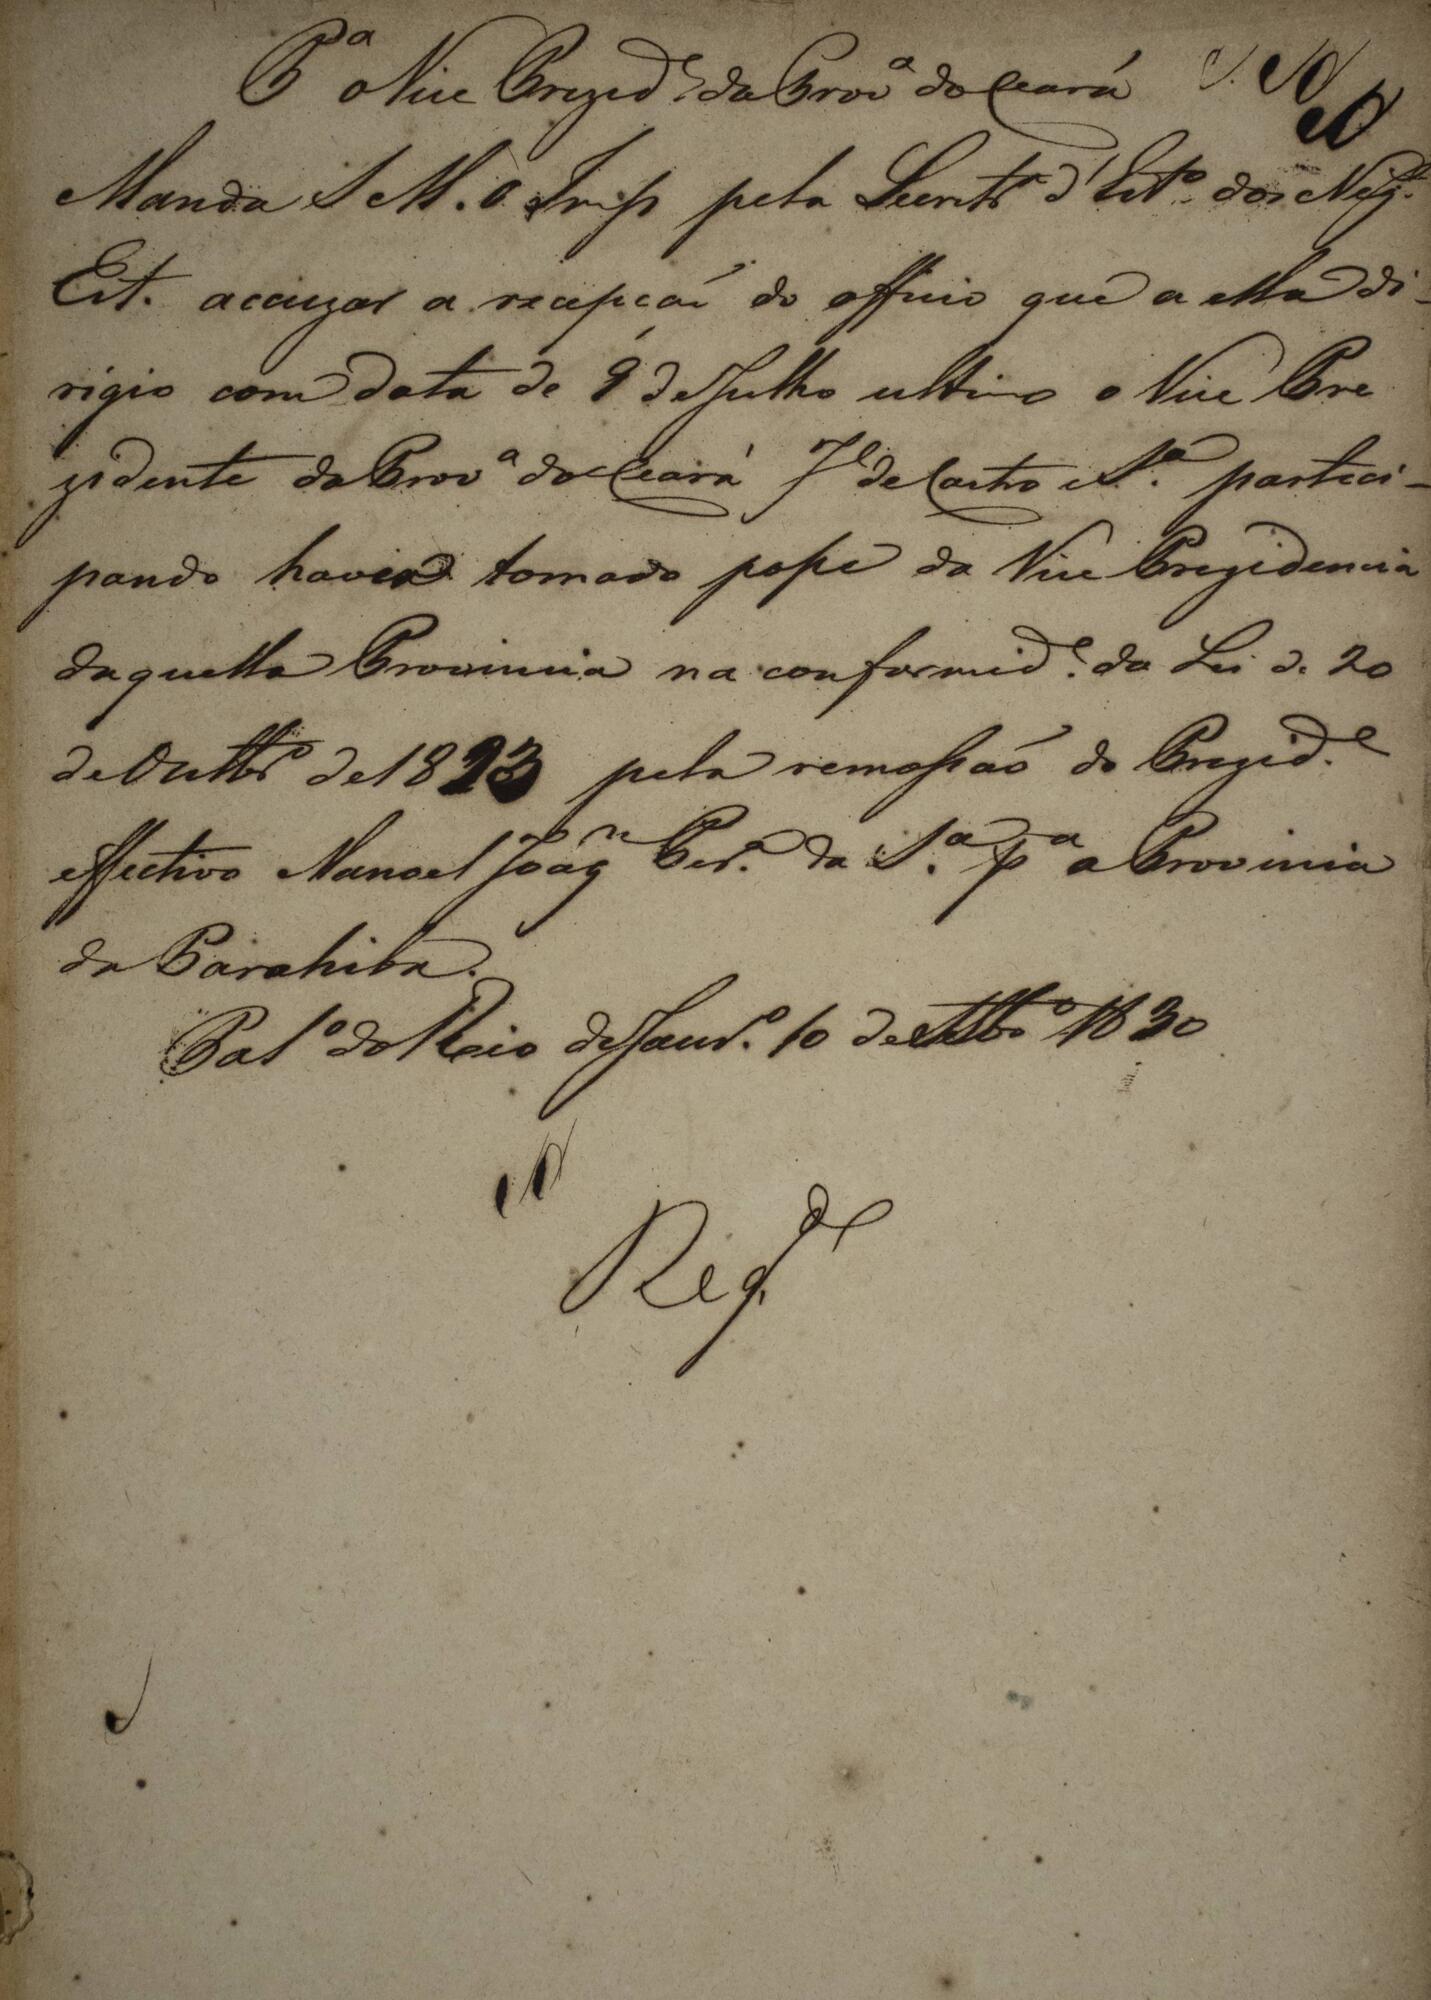 P.ª o Vice Prezid.e da Prov.ª do Ceará
Manda S M. o Imp pela Secretr.ª d'Est.º dos Neg.
Est. accuzar a recepçaõ do officio que a ella di-
rigio com data de 9 de Julho ultimo o Vice Pre
zidente da Prov.ª do Ceará J.e de Castro e S.ª parteci-
pando haver tomado posse da Vice Prezidencia
daquella Provincia na conformid.e da Lei de 20
de Outbr.º de 1823 pela remossaõ do Prezid.e
effectivo Manoel Joaq.n Per.ª da S.ª p.ª a Provincia
da Parahiba.
Pal.º do Rio de Janr.º 10 de Setbr.º 1830
Reg.de